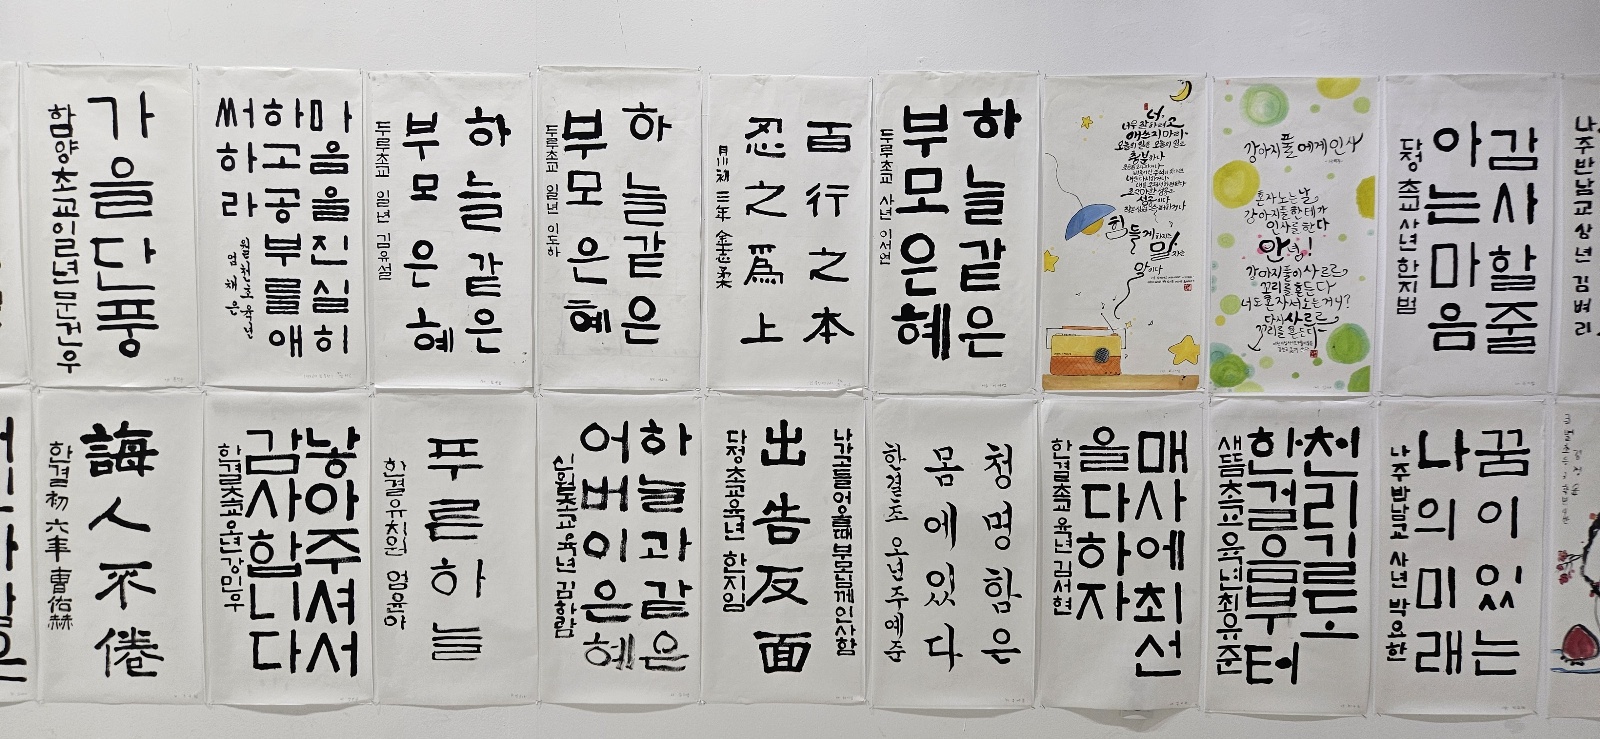 가을단풍
함양초교일년문건우
마음을진실히
하고공부를애
써하라
월천초 육년
엄채은
하늘같은
부모은혜
두루초교 일년 김유설
하늘같은
부모은혜
두루초교 일년 이도하
百行之本
忍之爲上
月川初 三年 金志柔
하늘같은
부모은혜
두루초교 사년 이서연
너,
힘들게
말
말이다
강아지풀에게 인사
혼자 노는 날
강아지풀한테 가
인사를 한다
안녕!
강아지풀이 사르르
꼬리를 흔든다
너도 혼자서 노는 거니?
다시 사르르
꼬리를 흔든다
감사할줄
아는마음
다정초교사년한지범
나주반남교삼년 김벼리
誨人不倦
한결初 六年 曹佑赫
낳아주셔서
감사합니다
한결초교오년강민우
푸른하늘
한결유치원 엄윤아
하늘과같은
어버이은혜
신원초교육년 김하람
나갈때들어올때부모님께인사함
出告反面
다정초교육년 한지임
청명함은
몸에있다
한결초 오년주예준
매사에최선
을다하자
한결초교육년김서현
천리길도
한걸음부터
새뜸초교육년최유준
꿈이있는
나의미래
나주반남교 사년 박요한